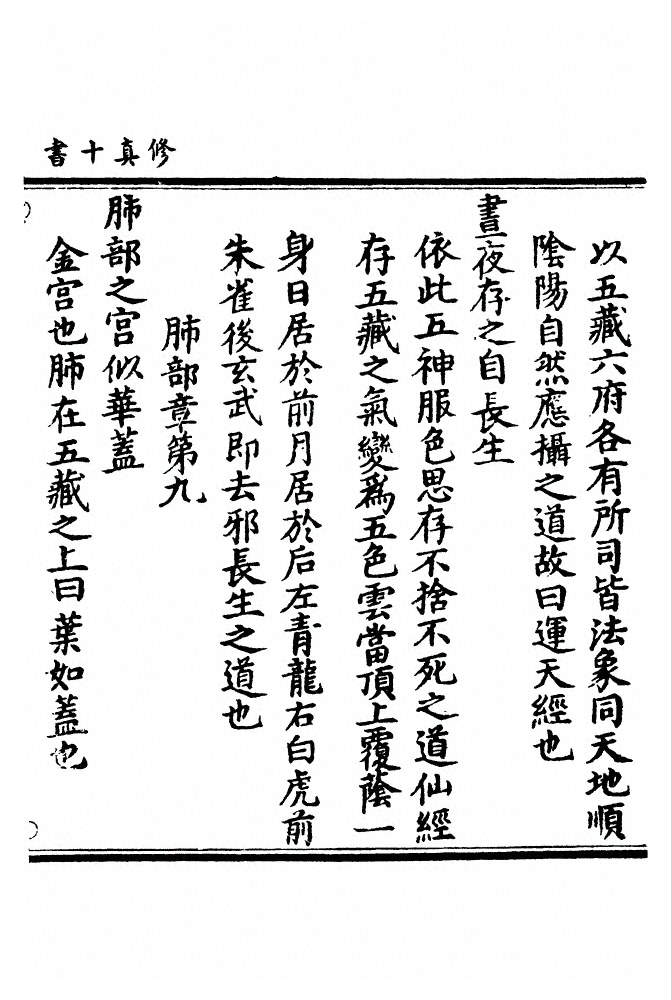 修真十書
以五藏六府各有所司皆法象同天地順
陰陽自然應攝之道故曰運天經也
晝夜存之自長生
依此五神服色思存不捨不死之道仙經
存五藏之氣變爲五色雲當頂上覆蔭一
身日居於前月居於后左青龍右白虎前
朱雀後玄武即去邪長生之道也
肺部章第九
肺部之宮似華蓋
金宮也肺在五藏之上曰葉如蓋也